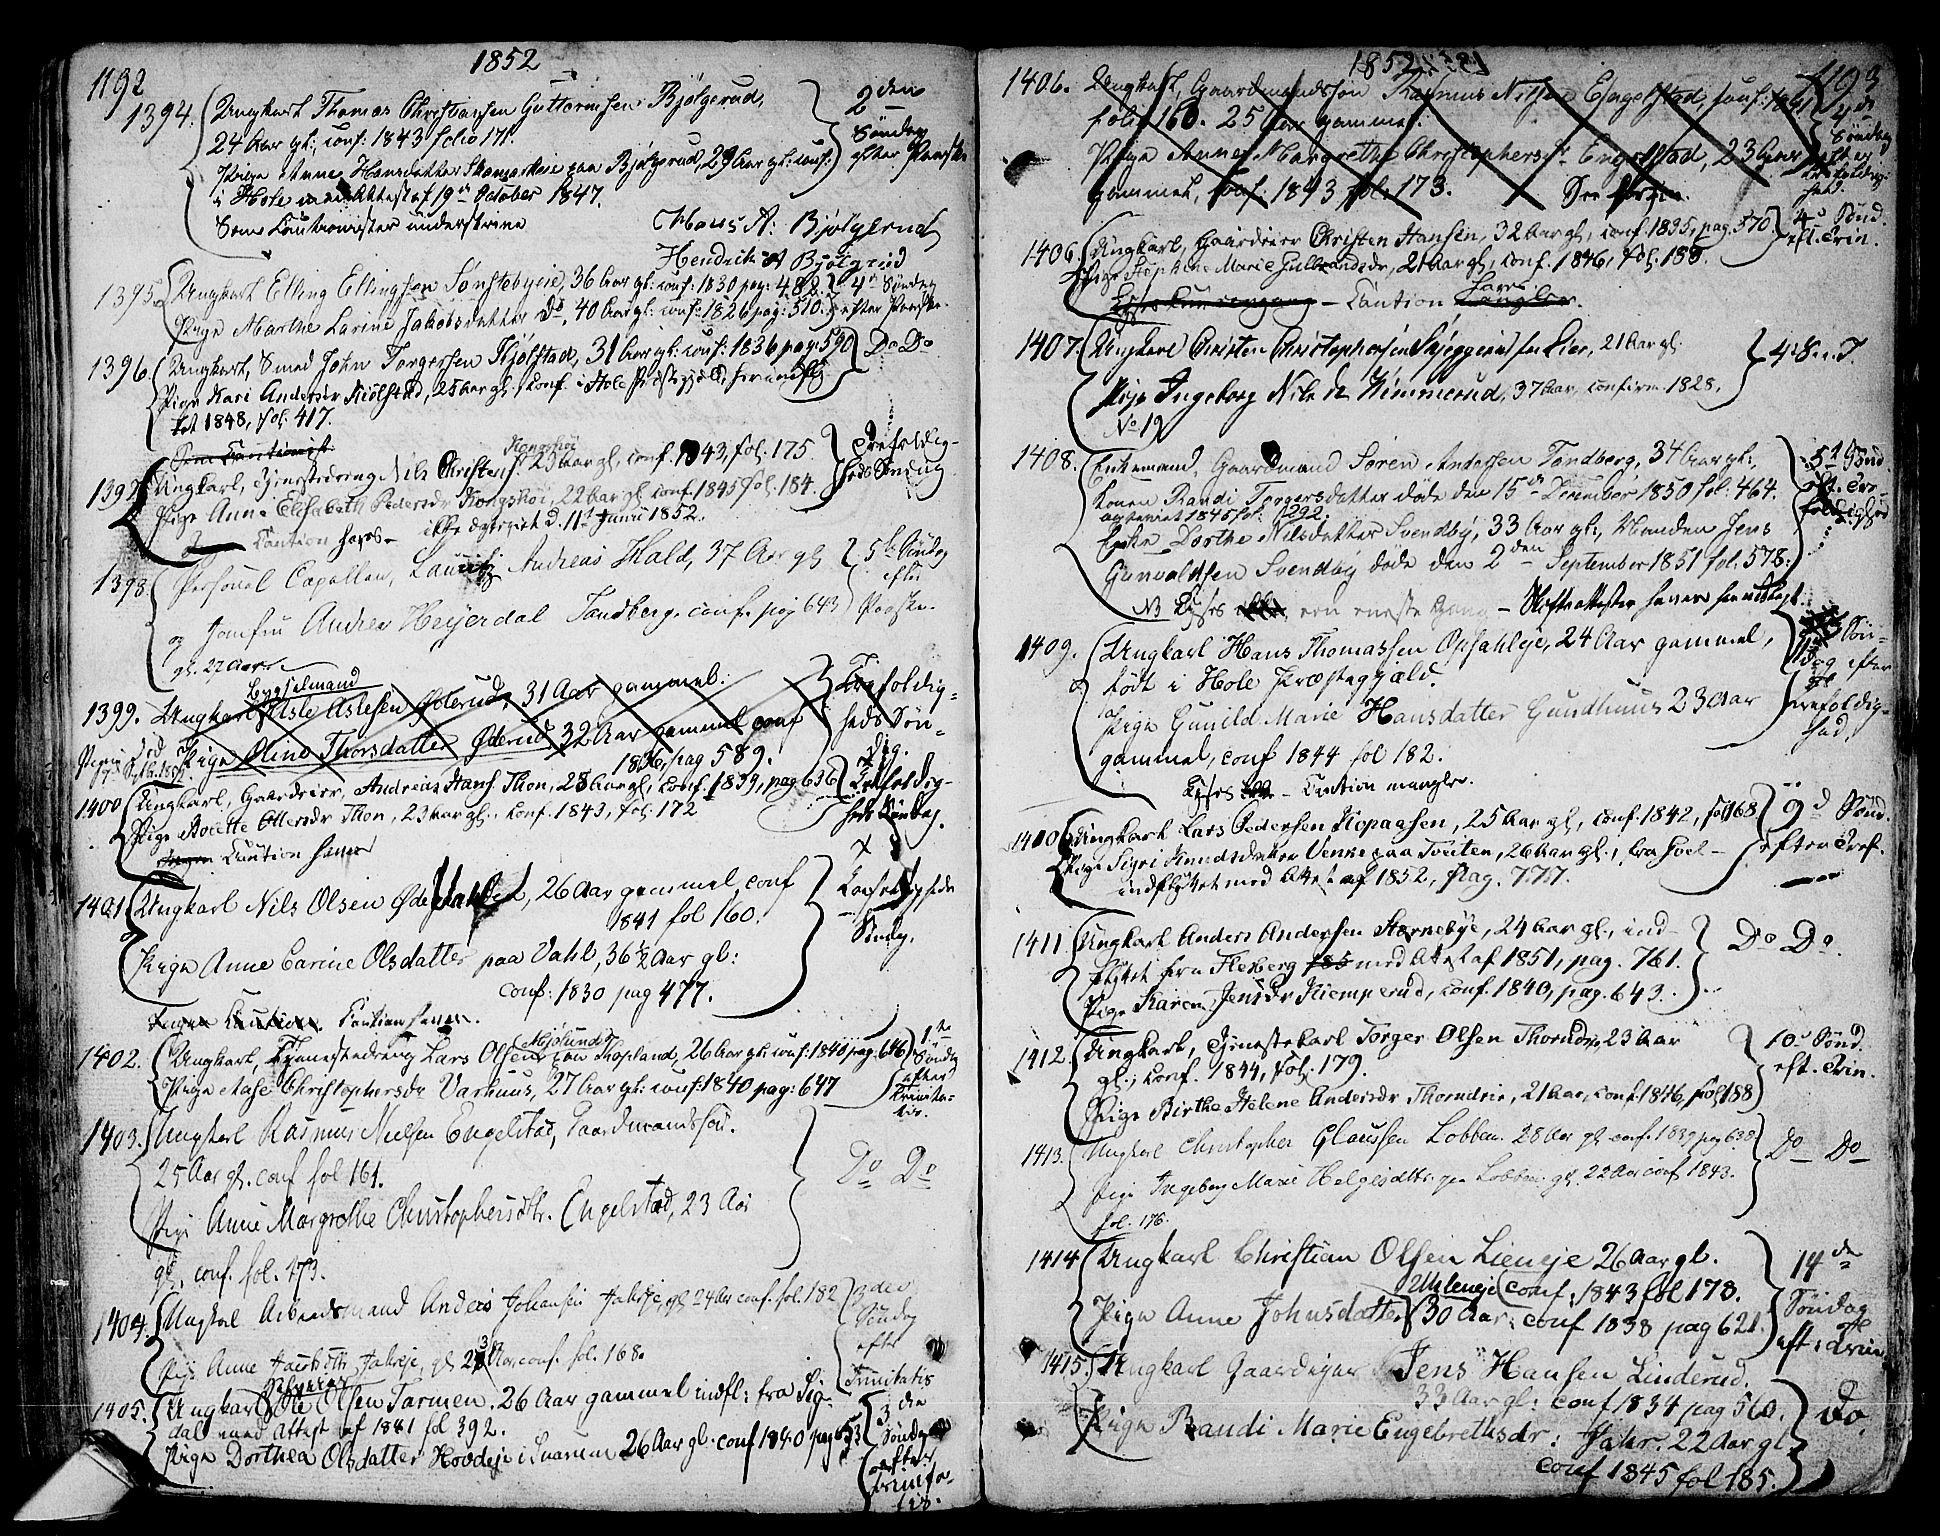 1192
1852
1394. Ungkarl Thomas Christiansen Guttormsen Bjølgerud,
24 Aar gl:, conf: 1843 folio 171.
Pige Anne Hansdatter paa Bjølgerud, 29 Aar gl: conf:
i Hole Attest af 19de October 1847.
Som Cautionister underskrive
Hans A: Bjølgerud
Hendrik A Bjølgerud
2den Søndag efter Paaske
1395. Ungkarl Elling Ellingsen Sønsteby eie, 36 Aar gl: conf: 1830 pag: 488.
Pige Marthe Larine Jakobsdatter Do, 40 Aar gl: conf: 1826 pag: 510.
4de Søndag efter Paaske
1396. Ungkarl, Smed John Torgersen Kjølstad, 31 Aar gl: conf: 1836 pag: 590
Pige Kari Andersdr Kiølstad, 25 Aar gl:, Conf. i Hole Præstegjeld,
tet 1848, fol. 417.
Do Do
1397. Ungkarl, Tjenestedreng Nils Christens. Kongshøi 23 Aar gl, conf. 1843, fol. 175.
Pige Anne Elisabeth Pedersdr Kongshøi, 22 Aar gl, conf. 1845 fol. 184.
Caution haves - ikke ægteviet d. 11te Junii 1852.
Trefoldigheds Søndag
1398. Personel Capellan, Lauritz Andreas Hald, 37 Aar gl
og Jomfru Andrea Heyerdal Sandberg, conf. pag 643
gl. 27 Aar
5te Søndag efter Paaske.
1399. Ungkarl Bygselmand Asle Aslesen Øderud, 31 Aar gammel:
Pige Oline Thorsdatter Øderud 32 Aar gammel conf
1836, pag 589.
Trefoldigheds Søndag.
1400 Ungkarl, Gaardeier, Andreas Hans. Thon, 28 Aar gl, conf. 1839, pag. 636
Pige Rocette Ottersdr Thon, 23 Aar gl., conf. 1843, fol. 172
Caution haves
Trefoldigheds Søndag.
1401 Ungkarl Nils Olsen, 26 Aar gammel, conf
1841 fol 160.
Pige Anne Carine Olsdatter paa Vahl, 36 ½ Aar gl:
conf: 1830 pag 477.
Ingen Caution. Caution haves.
1402. Ungkarl, Tjenestedreng Lars Olsen Mjølund paa Thopland, 26 Aar gl: conf: 1840 pag: 646
Pige Aase Christophersdr Varhuus, 27 Aar gl: conf: 1840 pag: 647
1ste Søndag efter Trinitatis.
1403. Ungkarl Rasmus Nielsen Engelstad, Gaardmandssøn.
25 Aar gl. conf fol 161.
Pige Anne Margrethe Christophersdtr. Engelstad, 23 Aar
gl, conf. fol. 173.
Do Do
1404. Ungkal Arbeidsmand Anders Johansen Jahreje, gl 24 Aar conf. fol. 182
Pige Anne Jacobsdtr Jahreje, gl 23 Aar, conf. fol. 168.
3die Søndag efter Trinitatis
1405. Ungkarl Ole Olsen Tarmen, 26 Aar gammel indfl: fra Sig-
dal med Attest af 1841 fol 392.
Pige Dorthea Olsdatter Hovdeje i Snarum 26 Aar gl. conf 1840 pag 653
3die Søndag efter Trinita-
tis.
1193
1852
1406. Ungkarl, Gaardmandssøn Rasmus Nilsen Engelstad, conf: 1841
folio 160. 25 Aar gammel.
Pige Anne Margrethe Christophersdr Engelstad, 23 Aar
gammel, conf. 1843 fol. 173.
4de Søndag efter Trefoldighed.
1406. Ungkarl, Gaardeier Christen Hansen, 32 Aar gl, conf. 1835, pag. 570
Pige Sophine Marie Gulbrandsdr, 21 Aar gl, conf. 1846, fol. 188.
- Caution haves.
4de Sønd. eft. Trin.
1407. Ungkarl Christen Christophersen Skjeggerud Eier, 21 Aar gl.
Pige Ingeborg Nilsdr Himmerud, 37 Aar, confirm. 1828,
No 19
4. S. e. T.
1408. Enkemand, Gaardmand Søren Andersen Tandberg, 34 Aar gl:,
konen Randi Torgersdatter døde den 15de December 1850 fol. 464.
copuleret 1845 fol. 1292.
Enke Dorthe Nilsdatter Svendby, 33 Aar gl:, Manden Jens
Gunvaldsen Svendby døde den 2den September 1851 fol. 578.
NB Lyses een eneste Gang - Skifteattester haves
5te Sønd eft. Trefoldighed
1409. Ungkarl Hans Thomassen Opsahleje, 24 Aar gammel,
født i Hole Præstegjæld.
Pige Gunild Marie Hansdatter Gundhuus 23 Aar
gammel, conf 1844 fol 182.
Lyses - Caution mangler.
Søndag efter Trefoldighed,
1410 Ungkarl Lars Pedersen Kopaasen, 25 Aar gl, conf. 1842, fol 168
Pige Sigri Knudsdatter Venke paa Tveiten, 26 Aar gl., fra
indflyttet med Attest af 1852, pag. 777.
9de Sønd. efter Tref.
1411. Ungkarl Anders Andersen Stærnebye, 24 Aar gl., ind-
flyttet fra Flesberg med Attest af 1851, pag. 761.
Pige Karen Jensdr Kiemperud, conf. 1840, pag. 643.
Do Do.
1412. Ungkarl, Tjenestekarl Torger Olsen Thorud, 23 Aar
gl., conf. 1844, fol. 179.
Pige Birthe Helene Andersdr Thorud, 21 Aar, conf. 1846, fol 188
10de Sønd. eft. Trin.
1413. Ungkal Christopher Glaussen Lobben. 28 Aar gl conf. 1839 pag 638
Pige Ingeborg Marie Helgesdtr. paa Lobben gl. 22 Aar conf 1843.
fol. 176.
Do Do
1414 Ungkarl Christian Olsen Lieneje 26 Aar gl.
conf: 1843 fol 173.
Pige Anne Johnsdatter Uhleneje 30 Aar: conf 1838 pag 621.
14de Søndag eft: Trin.
1415. Ungkarl Gaardejer Jens Hansen Linderud.
33 Aar gl: conf 1834 pag 560.
Pige Randi Marie Engebrethsdr: Jahr. 22 Aar gl
conf 1845 fol 185.
Do.